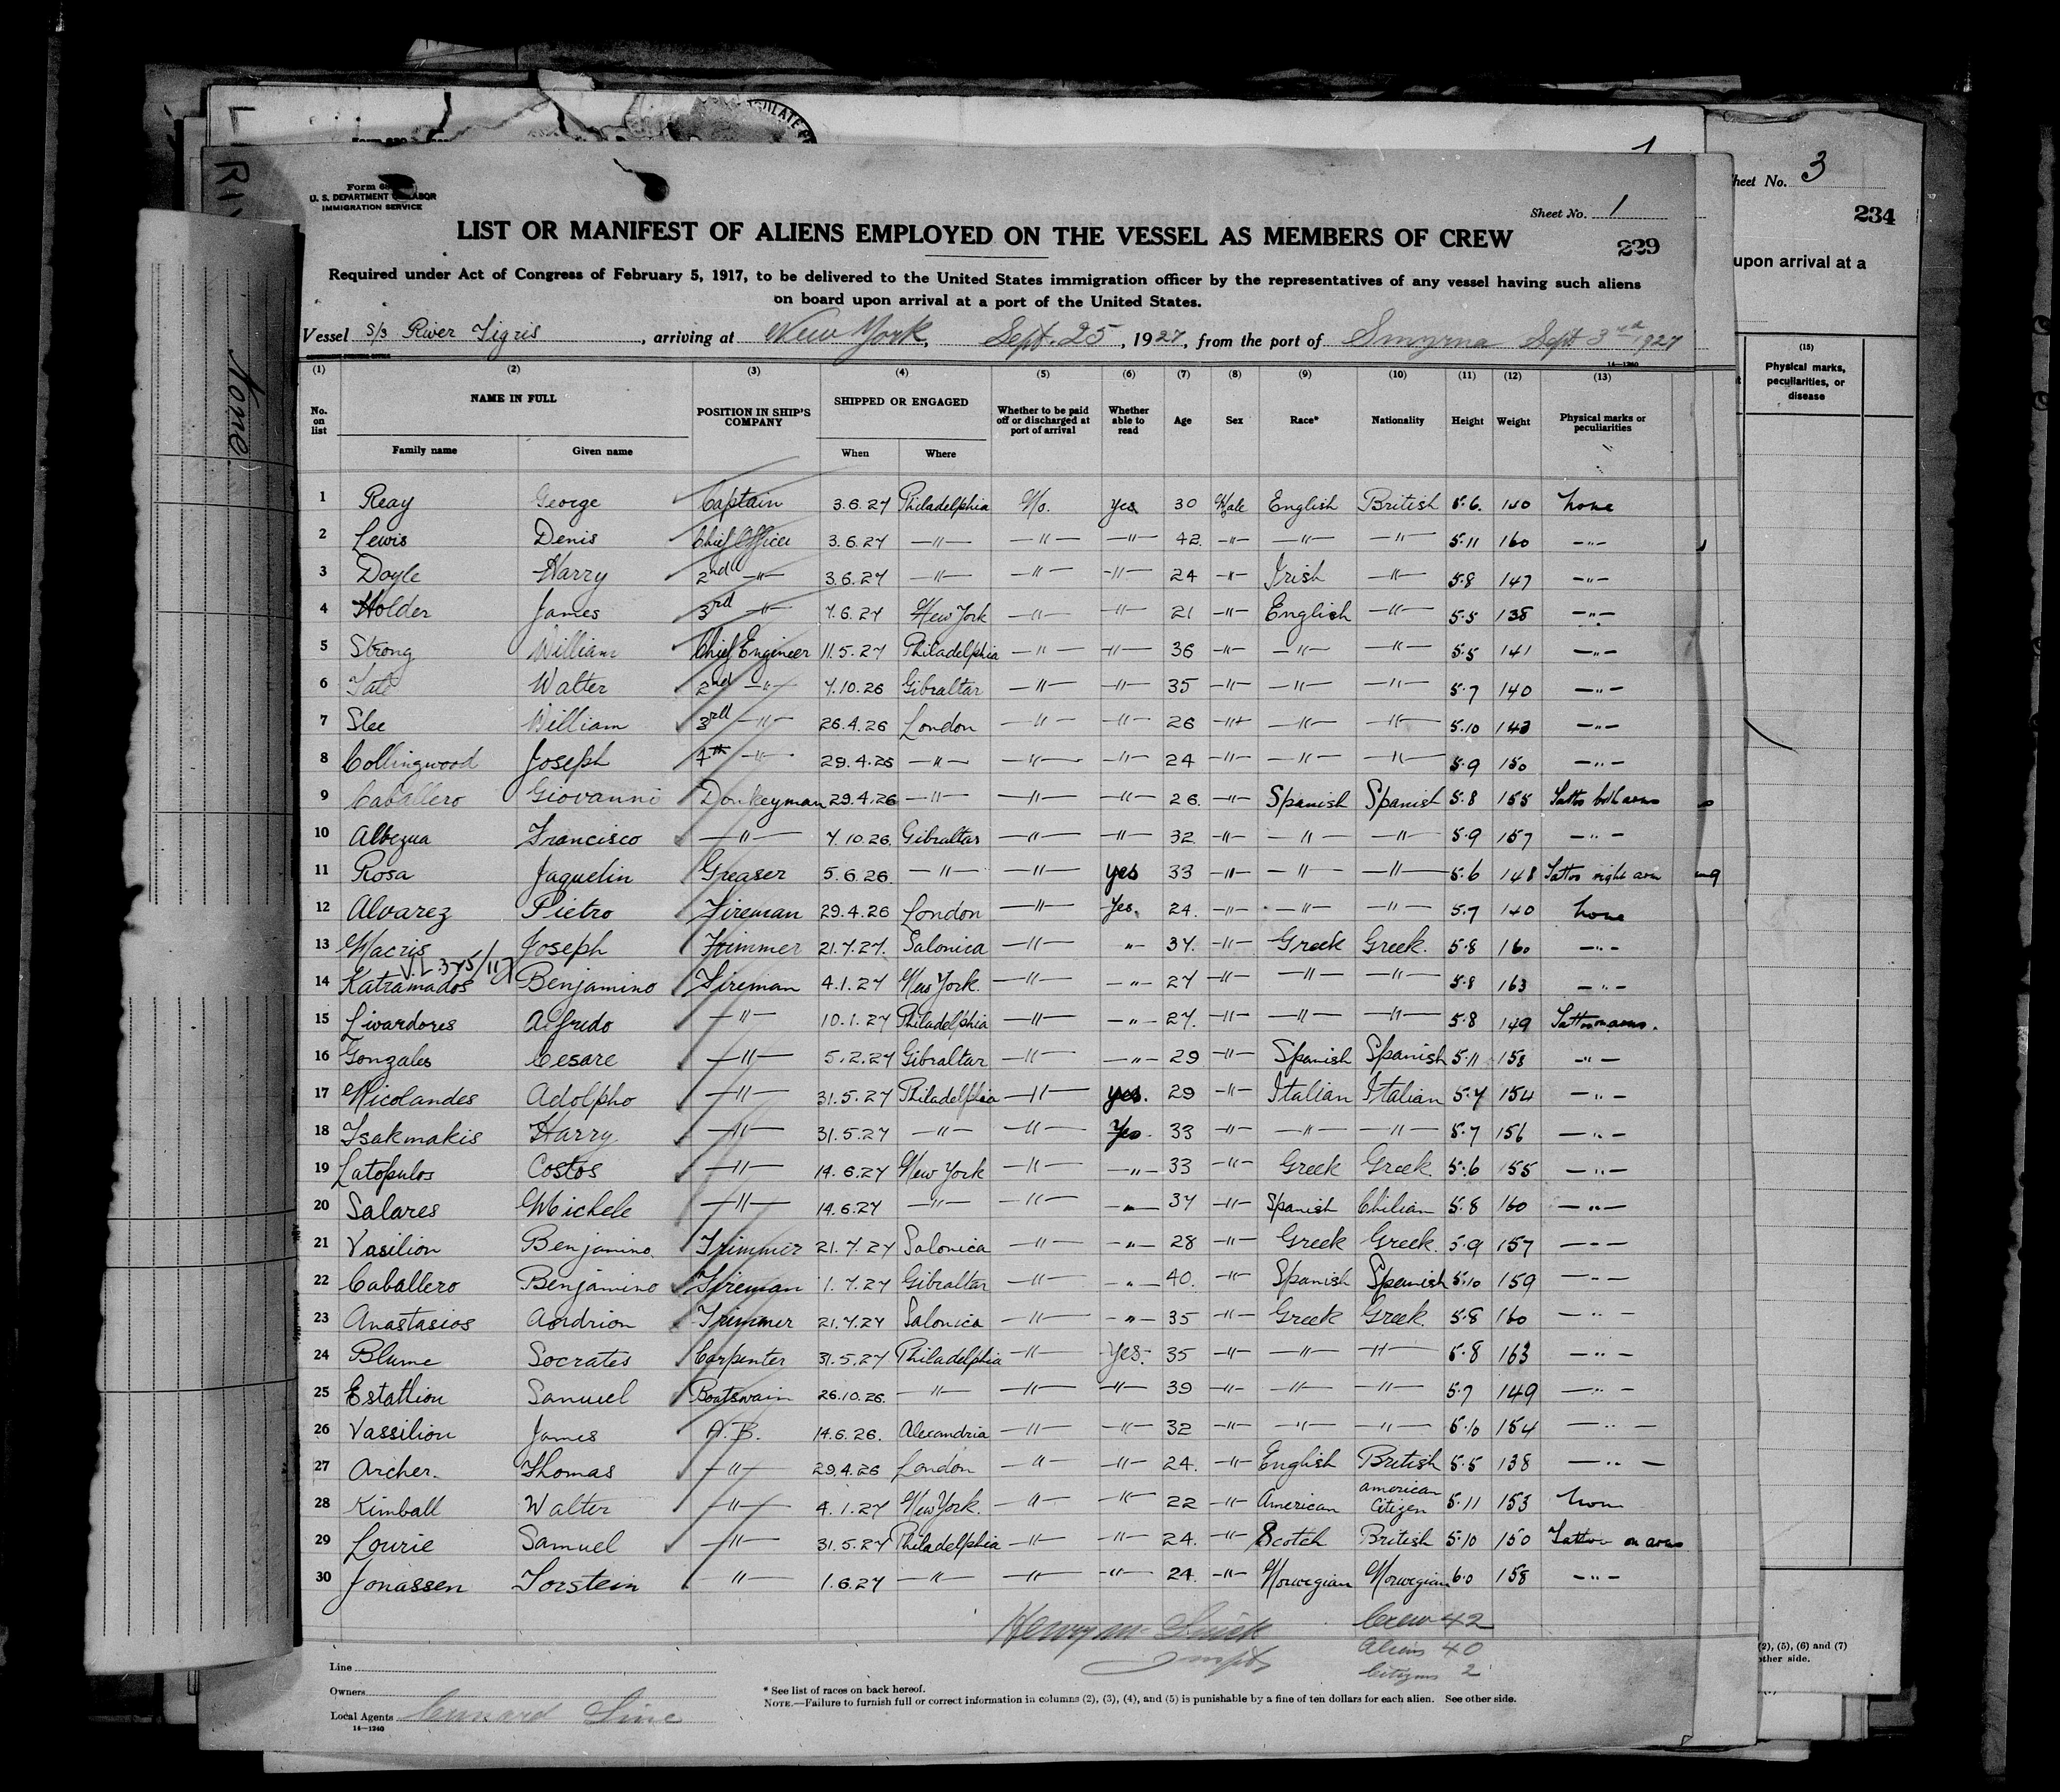 3
Sheet No. 1
heet No. 3
Form 6
U. S. DEPARTMENT LABOR
IMMIGRATION SERVICE
234
LIST OR MANIFEST OF ALIENS EMPLOYED ON THE VESSEL AS MEMBERS OF CREW
229
upon arrival at a
Required under Act of Congress of February 5, 1917, to be delivered to the United States immigration officer by the representatives of any vessel having such aliens
on board upon arrival at a port of the United States.
Vessel S/S River Tigris, arriving at New York, Sept. 25, 1927, from the port of Smyrna Sept 3rd 1927
14—1240
None.
(1) (2) (3) (4) (5) (6) (7) (8) (9) (10) (11) (12) (13)
(15) Physical marks, peculiarities, or disease
No. on list NAME IN FULL POSITION IN SHIP'S COMPANY SHIPPED OR ENGAGED Whether to be paid off or discharged at port of arrival Whether able to read Age Sex Race* Nationality Height Weight Physical marks or peculiarities
Family name Given name When Where
1 Reay George Captain 3.6.27 Philadelphia No. yes 30 Male English British 5.6. 150 none
2 Lewis Denis Chief Officer 3.6.27 —"— —"— —"— 42. —"— —"— —"— 5.11 160 —"—
3 Doyle Harry 2nd —"— 3.6.27 —"— —"— —"— 24 —"— Irish —"— 5.8 147 —"—
4 Holder James 3rd —"— 7.6.27 New York —"— —"— 21 —"— English —"— 5.5 138 —"—
5 Strong William Chief Engineer 11.5.27 Philadelphia —"— —"— 36 —"— —"— —"— 5.5 141 —"—
6 Tate Walter 2nd —"— 7.10.26 Gibraltar —"— —"— 35 —"— —"— —"— 5.7 140 —"—
7 Slee William 3rd —"— 26.4.26 London —"— —"— 26 —"— —"— —"— 5.10 143 —"—
8 Collingwood Joseph 4th —"— 29.4.26 —"— —"— —"— 24 —"— —"— —"— 5.9 150 —"—
9 Caballero Giovanni Donkeyman 29.4.26 —"— —"— —"— 26. —"— Spanish Spanish 5.8 155 Tattoo both arms
10 Albezua Francisco —"— 7.10.26. Gibraltar —"— —"— 32 —"— —"— —"— 5.9 157 —"—
11 Rosa Jaquelin Greaser 5.6.26. —"— —"— yes 33 —"— —"— —"— 5.6 148 Tattoo right arm
12 Alvarez Pietro Fireman 29.4.26 London —"— Yes. 24. —"— —"— —"— 5.7 140 none
13 Macris Joseph Trimmer 21.7.27. Salonica —"— —"— 37. —"— Greek Greek. 5.8 160 —"—
V.L 375/117
14 Katramados Benjamino Fireman 4.1.27 New York. —"— —"— 27 —"— —"— —"— 5.8 163 —"—
15 Livardores Alfredo —"— 10.1.27 Philadelphia —"— —"— 27. —"— —"— —"— 5.8 149 Tattoo on arms.
16 Gonzales Cesare —"— 5.2.27 Gibraltar —"— —"— 29 —"— Spanish Spanish 5.11 158 —"—
17 Nicolandes Adolpho —"— 31.5.27 Philadelphia —"— yes. 29 —"— Italian Italian 5.7 154 —"—
18 Tsakmakis Harry —"— 31.5.27 —"— —"— Yes. 33 —"— —"— —"— 5.7 156 —"—
19 Latopulos Costos —"— 14.6.27 New York —"— —"— 33 —"— Greek Greek. 5.6 155 —"—
20 Salares Michele —"— 14.6.27 —"— —"— —"— 37 —"— Spanish Chilian 5.8 160 —"—
21 Vasilion Benjamino. Trimmer 21.7.27 Salonica —"— —"— 28 —"— Greek Greek. 5.9 157 —"—
22 Caballero Benjamino Fireman 1.7.27 Gibraltar —"— —"— 40. —"— Spanish Spanish 5.10 159 —"—
23 Anastasios Andrion Trimmer 21.7.27 Salonica —"— —"— 35 —"— Greek Greek. 5.8 160 —"—
24 Blume Socrates Carpenter 31.5.27 Philadelphia —"— Yes. 35 —"— —"— —"— 5.8 163 —"—
25 Estathion Samuel Boatswain 26.10.26. —"— —"— —"— 39 —"— —"— —"— 5.7 149 —"—
26 Vassilion James A.B. 14.6.26. Alexandria —"— —"— 32 —"— —"— —"— 5.10 154 —"—
27 Archer. Thomas —"— 29.4.26 London —"— —"— 24. —"— English British 5.5 138 —"—
28 Kimball Walter —"— 4.1.27 New York. —"— —"— 22 —"— American American Citizen 5.11 153 none
29 Lourie Samuel —"— 31.5.27 Philadelphia —"— —"— 24. —"— Scotch British 5.10 150 Tattoo on arms
30 Jonassen Torstein —"— 1.6.27 —"— —"— —"— 24. —"— Norwegian Norwegian 6.0 158 —"—
Crew 42
Aliens 40
Citizens 2
(2), (5), (6) and (7)
other side.
Line
Owners
Local Agents Cunard Line
14—1240
* See list of races on back hereof.
NOTE.—Failure to furnish full or correct information in columns (2), (3), (4), and (5) is punishable by a fine of ten dollars for each alien. See other side.